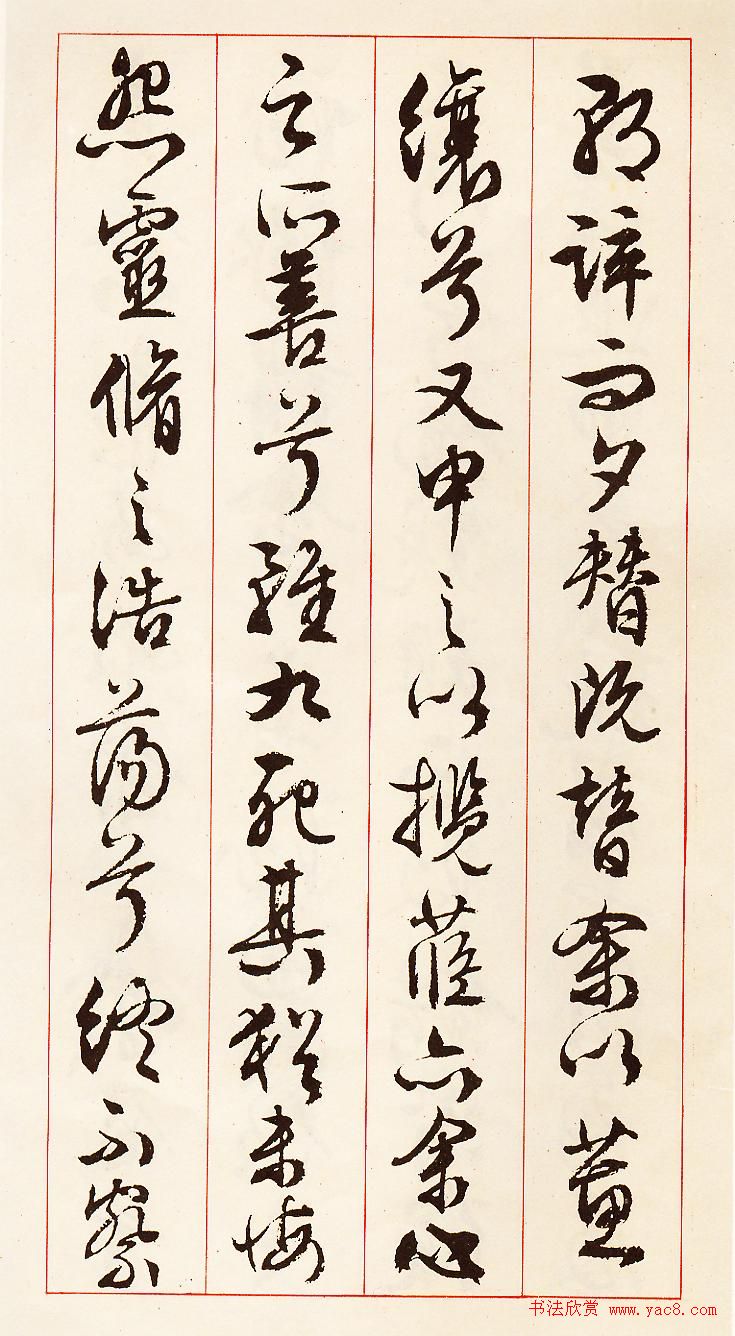 朝誶而夕替既替余以蕙
纕兮又申之以攬茝亦余心
之所善兮雖九死其猶未悔
怨靈脩之浩蕩兮終不察
书法欣赏 www.yac8.com